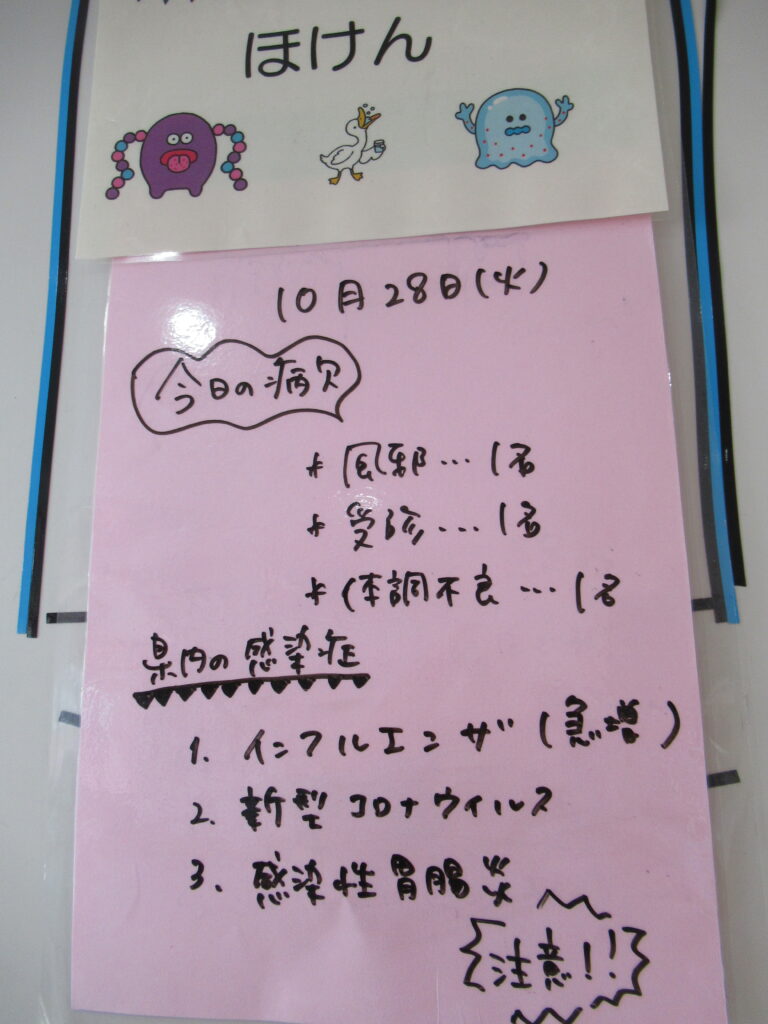 ほけん
10月28日(火)
今日の病欠
* 風邪… 1名
* 受診… 1名
* 体調不良… 1名
県内の感染症
1. インフルエンザ (急増)
2. 新型コロナウィルス
3. 感染性胃腸炎
注意!!